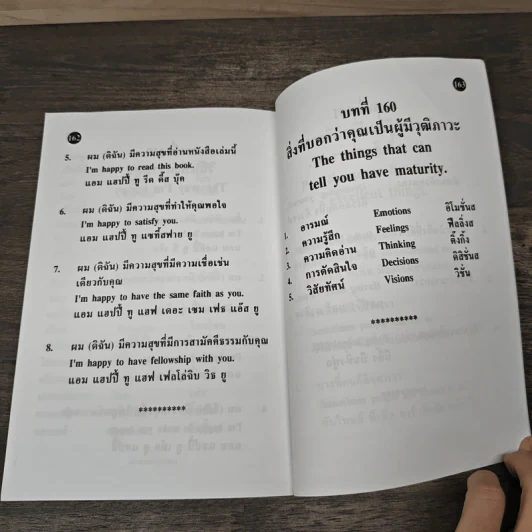 162
5. ผม (ดิฉัน) มีความสุขที่อ่านหนังสือเล่มนี้
I'm happy to read this book.
แอม แฮปปี้ ทู รีด ดิ๊ส บุ๊ค
6. ผม (ดิฉัน) มีความสุขที่ทำให้คุณพอใจ
I'm happy to satisfy you.
แอม แฮปปี้ ทู แซทิ๊สฟาย ยู
7. ผม (ดิฉัน) มีความสุขที่มีความเชื่อเช่น
เดียวกับคุณ
I'm happy to have the same faith as you.
แอม แฮปปี้ ทู แฮฟ เดอะ เซม เฟธ แอ๊ส ยู
8. ผม (ดิฉัน) มีความสุขที่มีการสามัคคีธรรมกับคุณ
I'm happy to have fellowship with you.
แอม แฮปปี้ ทู แฮฟ เฟลโล่ฉิบ วิธ ยู
**********
163
บทที่ 160
สิ่งที่บอกว่าคุณเป็นผู้มีวุฒิภาวะ
The things that can
tell you have maturity.
1. อารมณ์ Emotions อีโมชั่นส
2. ความรู้สึก Feelings ฟีลลิ่งส
3. ความคิดอ่าน Thinking ติ๊งกิ้ง
4. การตัดสินใจ Decisions ดิสิชั่นส
5. วิสัยทัศน์ Visions วิชั่น
**********